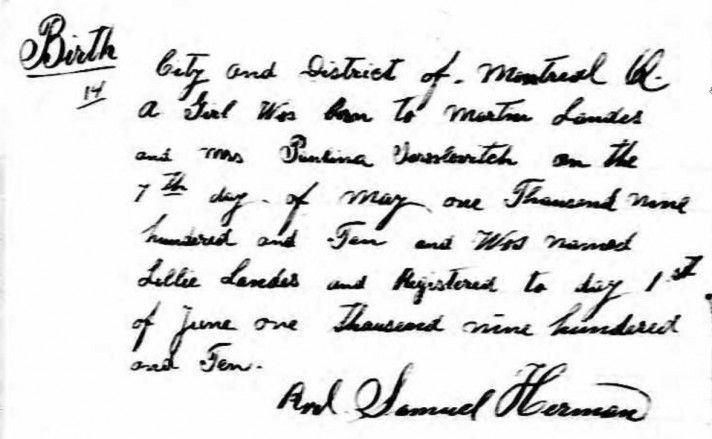 Birth
14
City and District of. Montreal
A Girl Was born to Martin Landes
and Mrs Paulina on the
7th day of May one Thousand nine
hundred and Ten and Was named
Lillie Landes and Registered to day 1st
of June one Thousand nine hundred
and Ten.
Samuel Herman